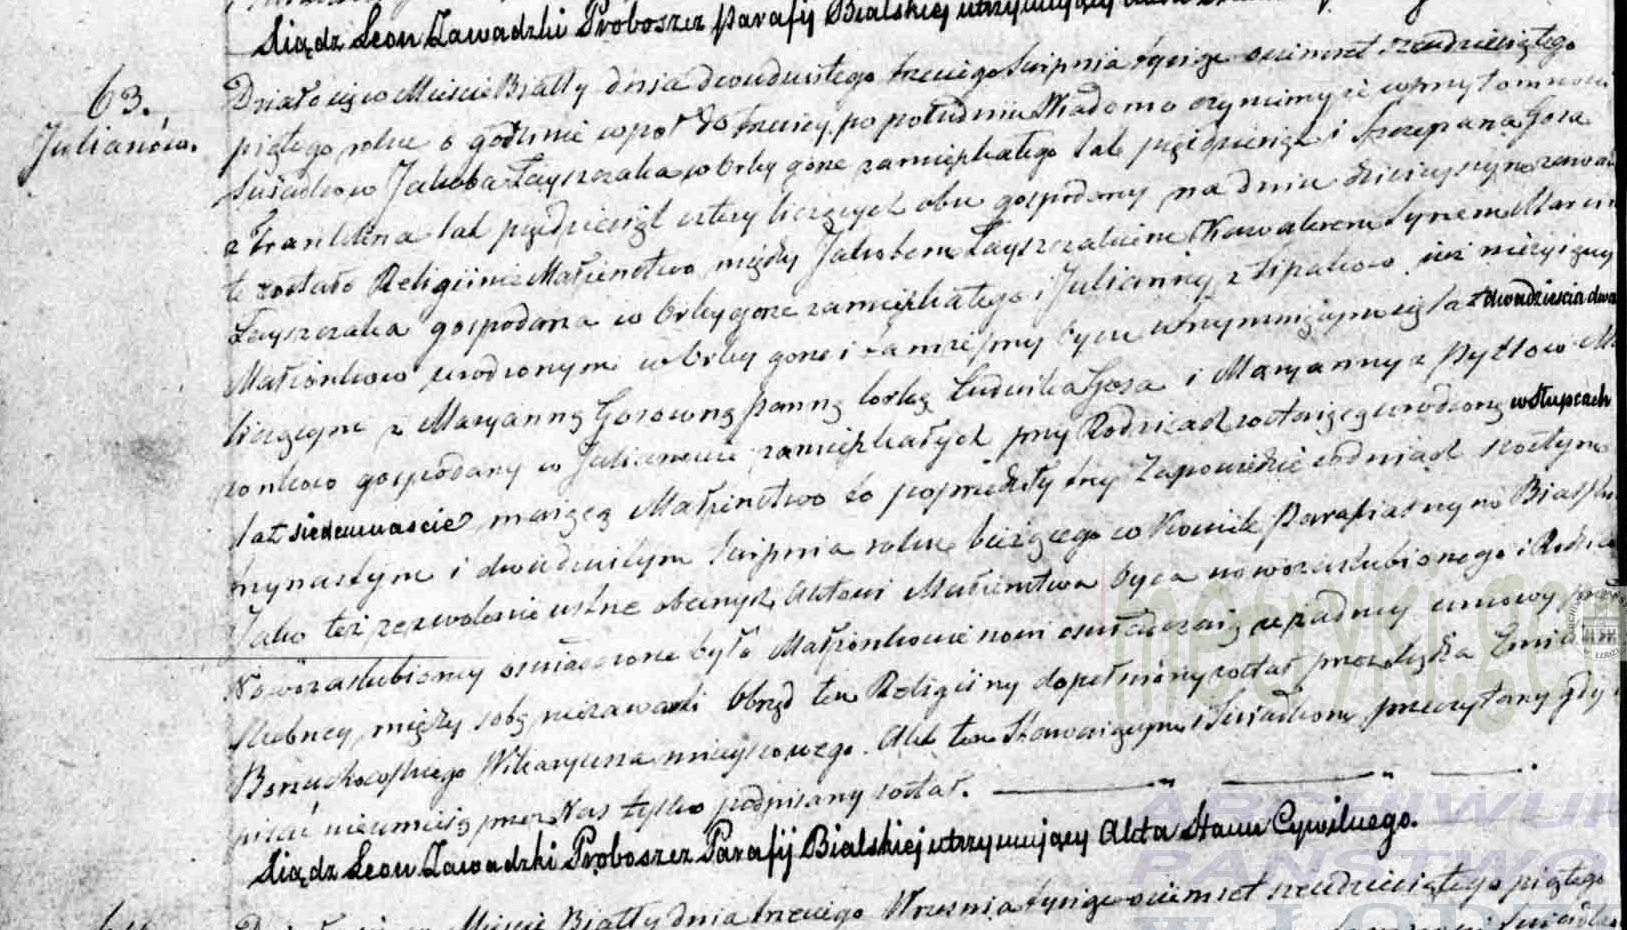 Xiądz Leon Zawadzki Proboszcz Parafij Bialskiej utrzymujący Akta
63.
Julianów.
Działo się w Mieście Białły dnia dwudziestego trzeciego Sierpnia tysiąc ośmset sześćdziesiątego
piątego roku o godzinie wpoł do trzeciej po południu Wiadomo czynimy iż w przytomności
Świadkow Jakoba Łayszczaka w Orłey gorze zamieszkałego lat pięćdziesiąt i Szczepana Gosa
z Franklina lat pięćdziesiąt cztery liczących obu gospodarzy, na dniu dzisieyszym zawar
te zostało Religijne Małżeństwo między Jakobem Łayszczakiem Kawalerem Synem Marcina
Łayszczaka gospodarza w Orłeygorze zamieszkałego i Julianny z Lipałow już nieżyjącey
Małżonkow urodzonym w Orłey gorze i tamże przy Oycu utrzymującym się lat dwadzieścia dwa
liczącym z Maryanną Gosowną Panną Corką Ludwika Gosa i Maryanny z Pyttow Mał
żonkow gospodarzy w Julianowie zamieszkałych przy Rodzicach zostającą urodzoną w Słupcach
lat siedemnaście mającą Małżeństwo to poprzedziły trzy Zapowiedzie w dniach szóstym
trzynastym i dwudziestym Sierpnia roku bieżącego w Kościele Parafialnym Bialskim
Jako też zezwolenie ustne obecnych Aktowi Małżeństwa Oyca nowozaslubionego i Rodziców
Nowozaslubioney oświadczone było Małżonkowie nowi oświadczają iż żadney umowy przed
slubney między sobą niezawarli Obrząd ten Religijny dopełniony został przez Xiędza
Wikaryusza mieyscowego. Akt ten Stawaiącym i Świadkom przeczytany gdy
pisać nieumieją przez Nas tylko podpisany został.
Xiądz Leon Zawadzki Proboszcz Parafij Bialskiej utrzymujący Akta Stanu Cywilnego.
Mieście Białły dnia trzeciego Września tysiąc ośmset sześćdziesiątego piątego
metryki.ge
ARCHIWUM
PAŃSTWO
W ŁODZI